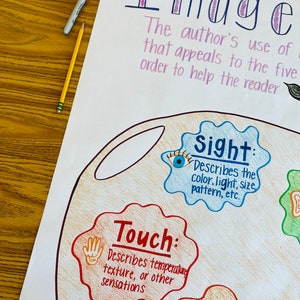 Image
The author's use of
that appeals to the five
order to help the reader
Sight:
Describes the
color, light, size,
pattern, etc.
Touch:
Describes temperature,
texture, or other
sensations